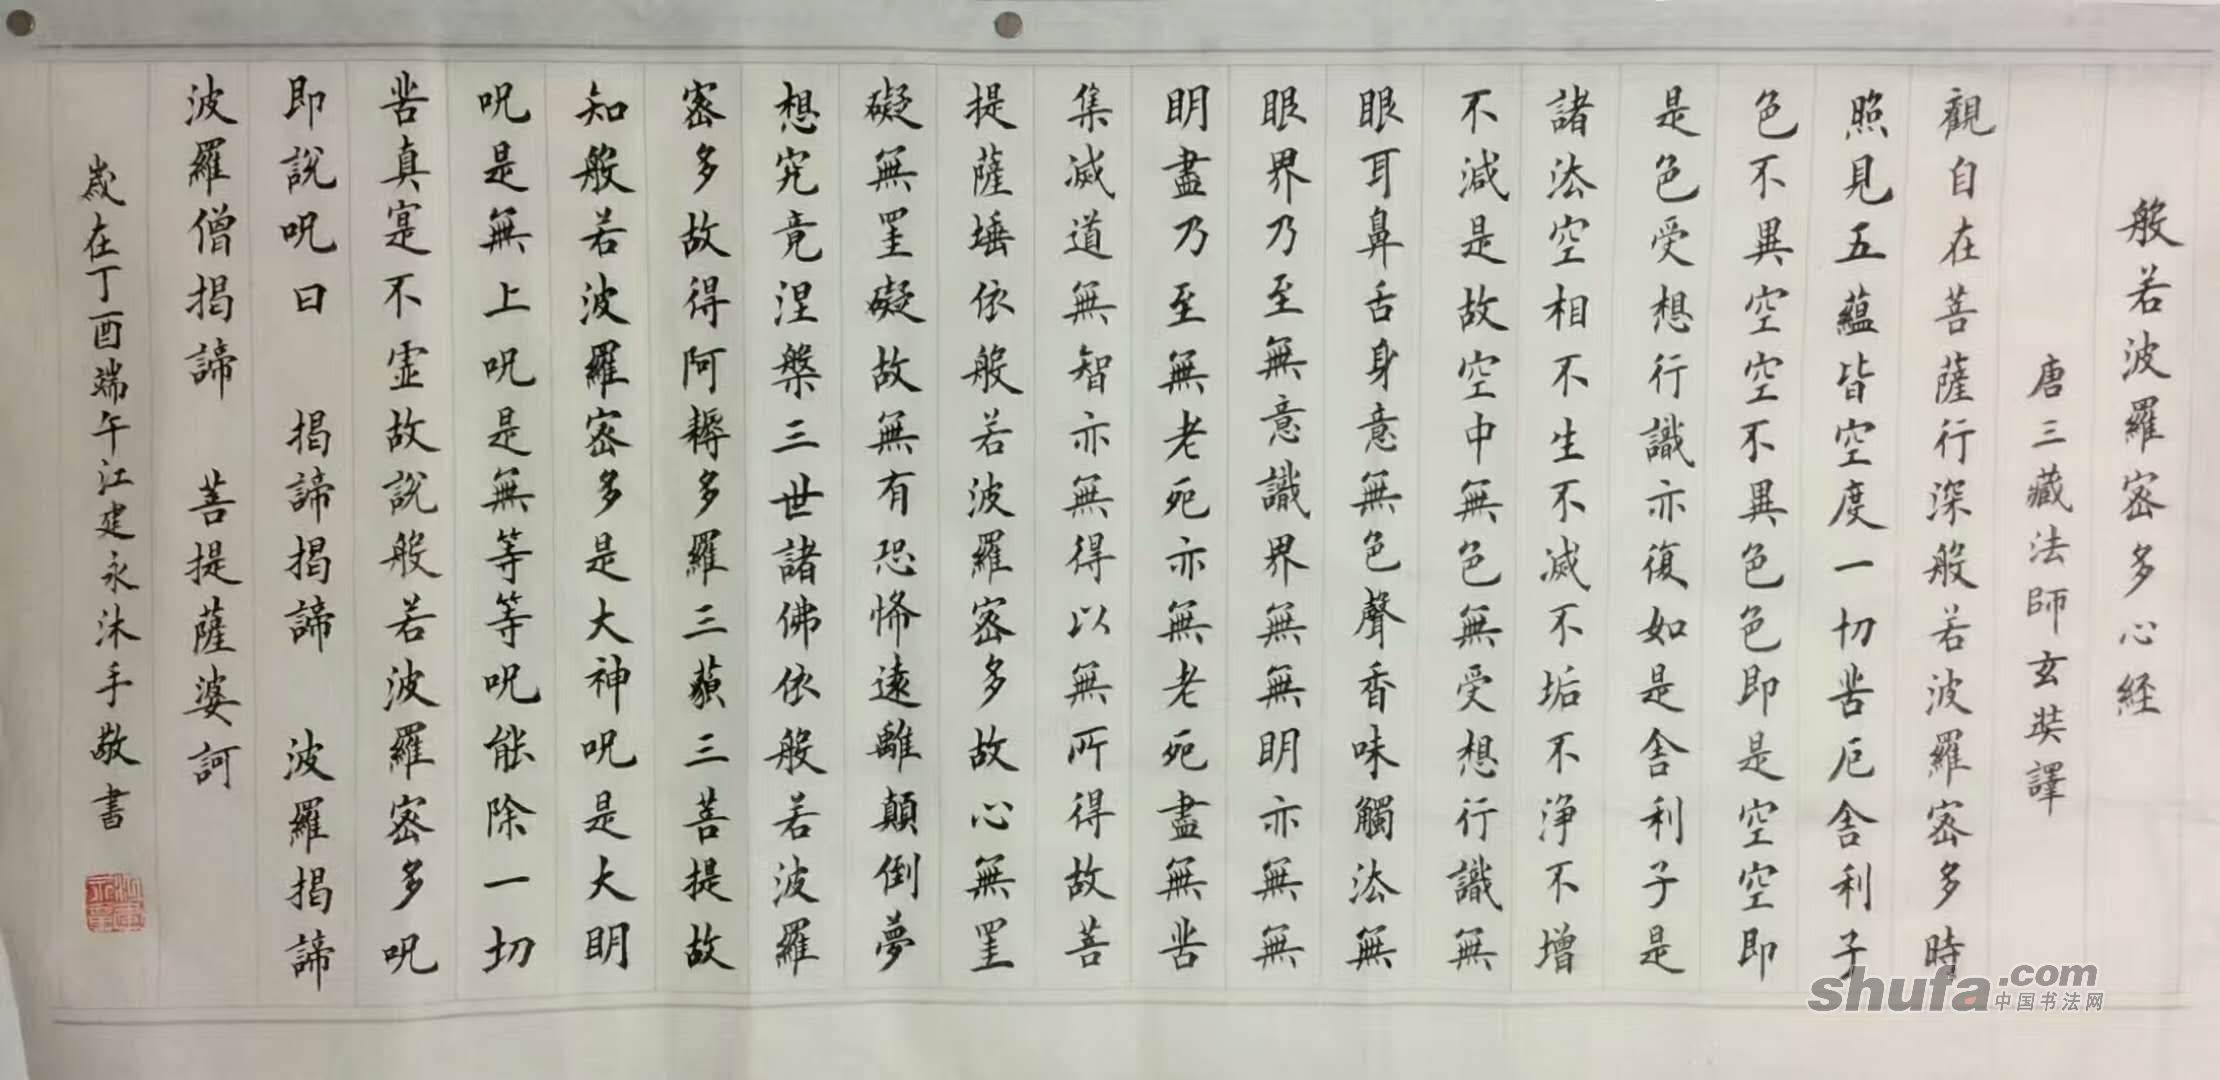 般若波羅密多心経
唐三藏法師玄奘譯
觀自在菩薩行深般若波羅密多時
照見五蘊皆空度一切苦厄舍利子
色不異空空不異色色即是空空即
是色受想行識亦復如是舍利子是
諸法空相不生不滅不垢不淨不增
不減是故空中無色無受想行識無
眼耳鼻舌身意無色聲香味觸法無
眼界乃至無意識界無無明亦無無
明盡乃至無老死亦無老死盡無苦
集滅道無智亦無得以無所得故菩
提薩埵依般若波羅密多故心無罣
礙無罣礙故無有恐怖遠離顛倒夢
想究竟涅槃三世諸佛依般若波羅
密多故得阿耨多羅三藐三菩提故
知般若波羅密多是大神呪是大明
呪是無上呪是無等等呪能除一切
苦真寔不虛故說般若波羅密多呪
即說呪曰 揭諦揭諦 波羅揭諦
波羅僧揭諦 菩提薩婆訶
歲在丁酉端午江建永沐手敬書
shufa.com
中国书法网